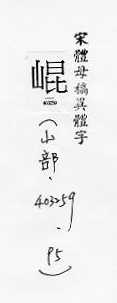 宋體母稿異體字
崐
(山部.403259.95)